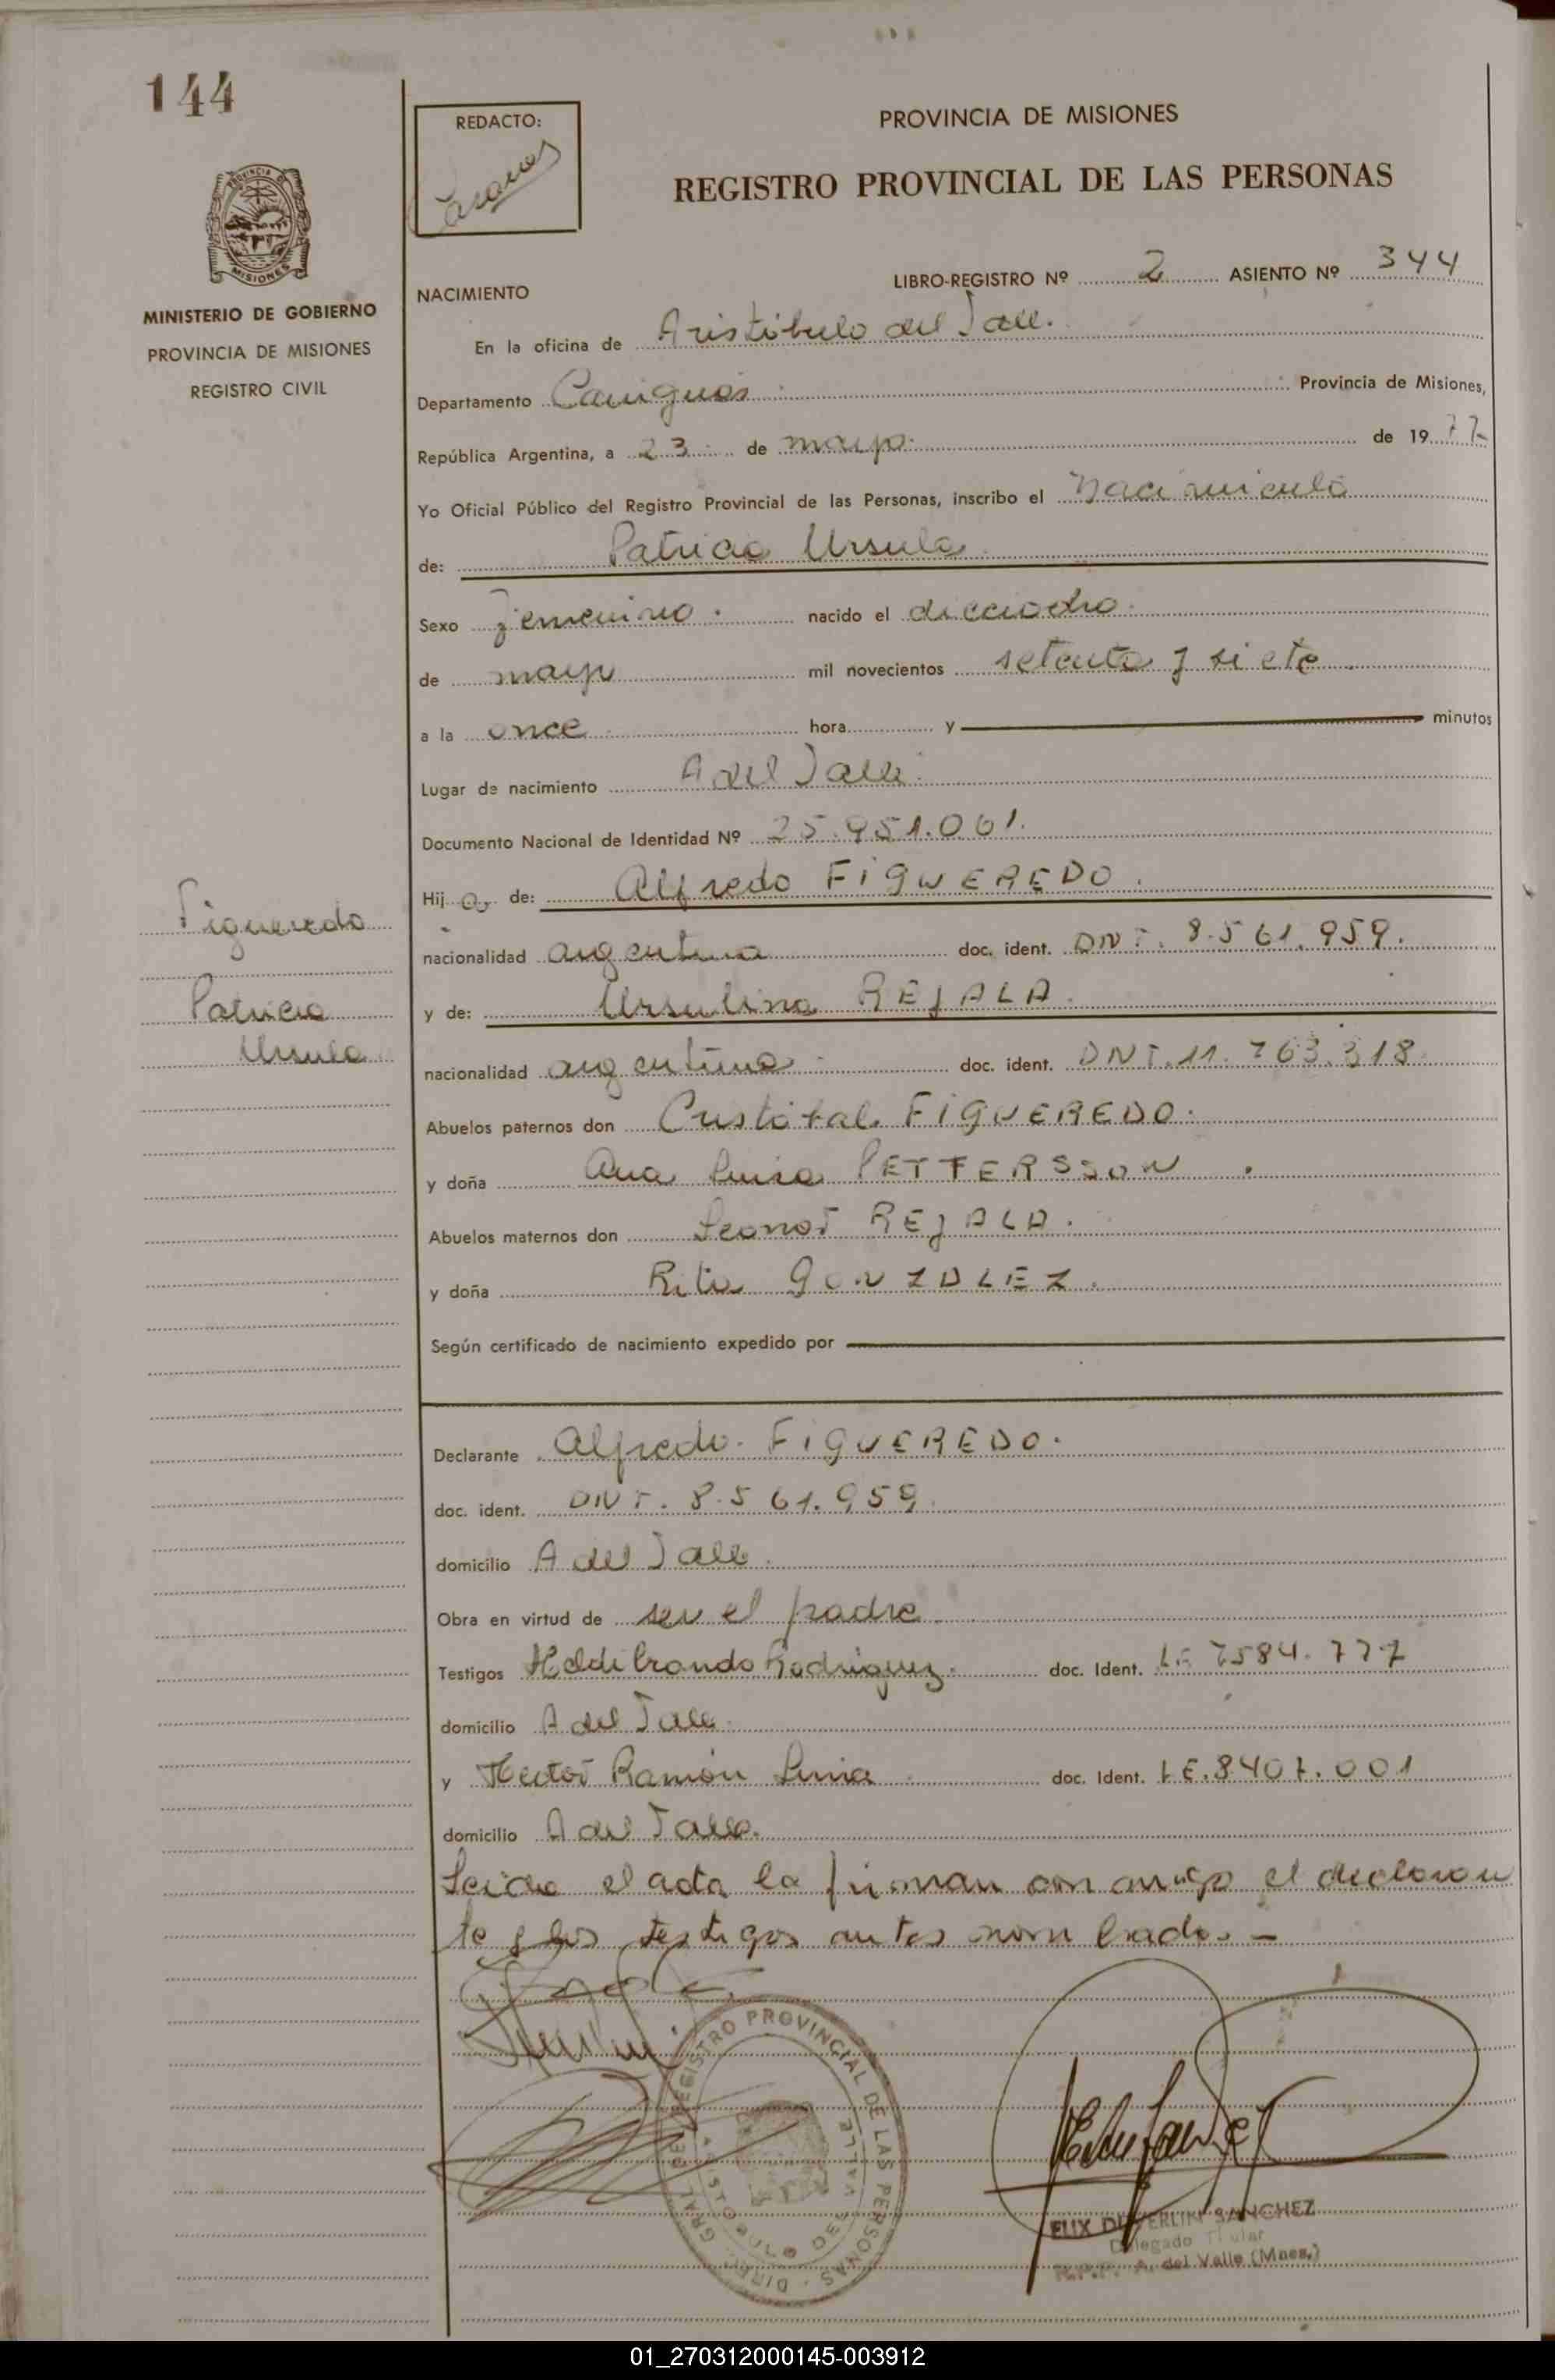 144
REDACTO:
PROVINCIA DE MISIONES
REGISTRO PROVINCIAL DE LAS PERSONAS
PROVINCIA DE
MISIONES
MINISTERIO DE GOBIERNO
PROVINCIA DE MISIONES
REGISTRO CIVIL
LIBRO-REGISTRO Nº 2 ASIENTO Nº 344
NACIMIENTO
En la oficina de Aristóbulo del Valle.
Departamento Cainguás Provincia de Misiones,
República Argentina, a 23 de mayo de 1977
Yo Oficial Público del Registro Provincial de las Personas, inscribo el Nacimiento
de: Patricia Ursula
Sexo femenino. nacido el dieciocho
de mayo mil novecientos setenta y siete
a la once hora y minutos
Lugar de nacimiento A del Valle
Documento Nacional de Identidad Nº 25.951.061.
Hij a de: Alfredo FIGUEREDO.
nacionalidad argentina doc. ident. DNI. 8.561.959.
y de: Ursulina REJALA
nacionalidad argentina doc. ident. DNI. 11.763.318
Abuelos paternos don Cristobal FIGUEREDO.
y doña Ana Luisa PETTERSSON.
Abuelos maternos don Leonor REJALA.
y doña Rita GONZALEZ.
Según certificado de nacimiento expedido por
Figueredo
Patricia
Ursula
Declarante Alfredo FIGUEREDO.
doc. ident. DNI. 8.561.959
domicilio A del Valle
Obra en virtud de ser el padre
Testigos Heldibrando Rodriguez. doc. Ident. LE 7584.777
domicilio A del Valle
y Hector Ramón Luna doc. Ident. LE.8407.001
domicilio A del Valle.
Leida el acta la firman conmigo el declaran
te y los testigos antes nombrados. -
DIREC. GRAL. DEL REGISTRO PROVINCIAL DE LAS PERSONAS
ARISTOBULO DEL VALLE
SANCHEZ
Delegado Titular
R.P.P. A. del Valle (Mnes.)
01_270312000145-003912